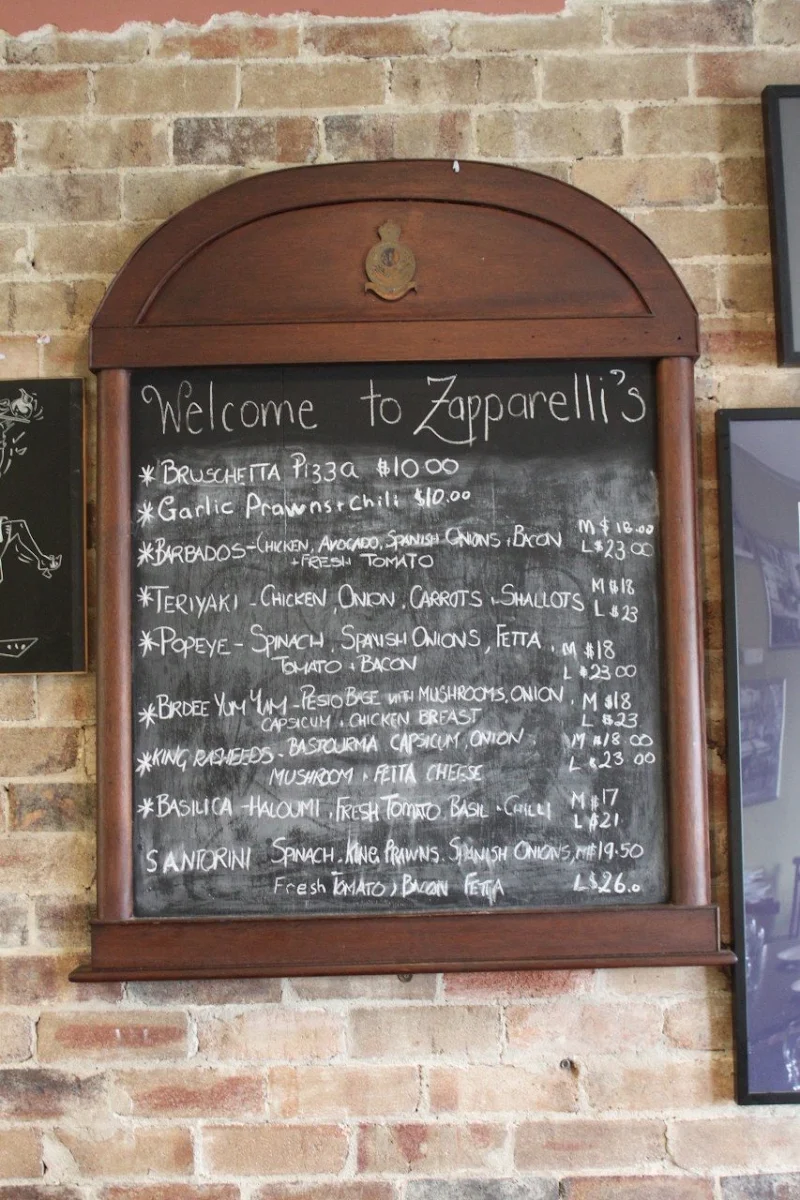 Welcome to Zapparelli's
* BRUSCHETTA Pizza $10.00
* Garlic Prawns + chili $10.00
* BARBADOS - CHICKEN, AVOCADO, SPANISH ONIONS, BACON M $18.00
+ FRESH TOMATO L $23.00
* TERIYAKI - CHICKEN, ONION, CARROTS, SHALLOTS M $18
L $23
* POPEYE - SPINACH, SPANISH ONIONS, FETTA, M $18
TOMATO + BACON L $23.00
* BIRDEE YUM YUM - PESTO BASE WITH MUSHROOMS, ONION, M $18
CAPSICUM, CHICKEN BREAST L $23
* KING RASHEEDS - BASTOURMA CAPSICUM, ONION M $18.00
MUSHROOM + FETTA CHEESE L $23.00
* BASILICA - HALOUMI, FRESH TOMATO, BASIL + CHILLI M $17
L $21
SANTORINI SPINACH, KING PRAWNS, SPANISH ONIONS, M $19.50
Fresh TOMATO, BACON FETTA L $26.0